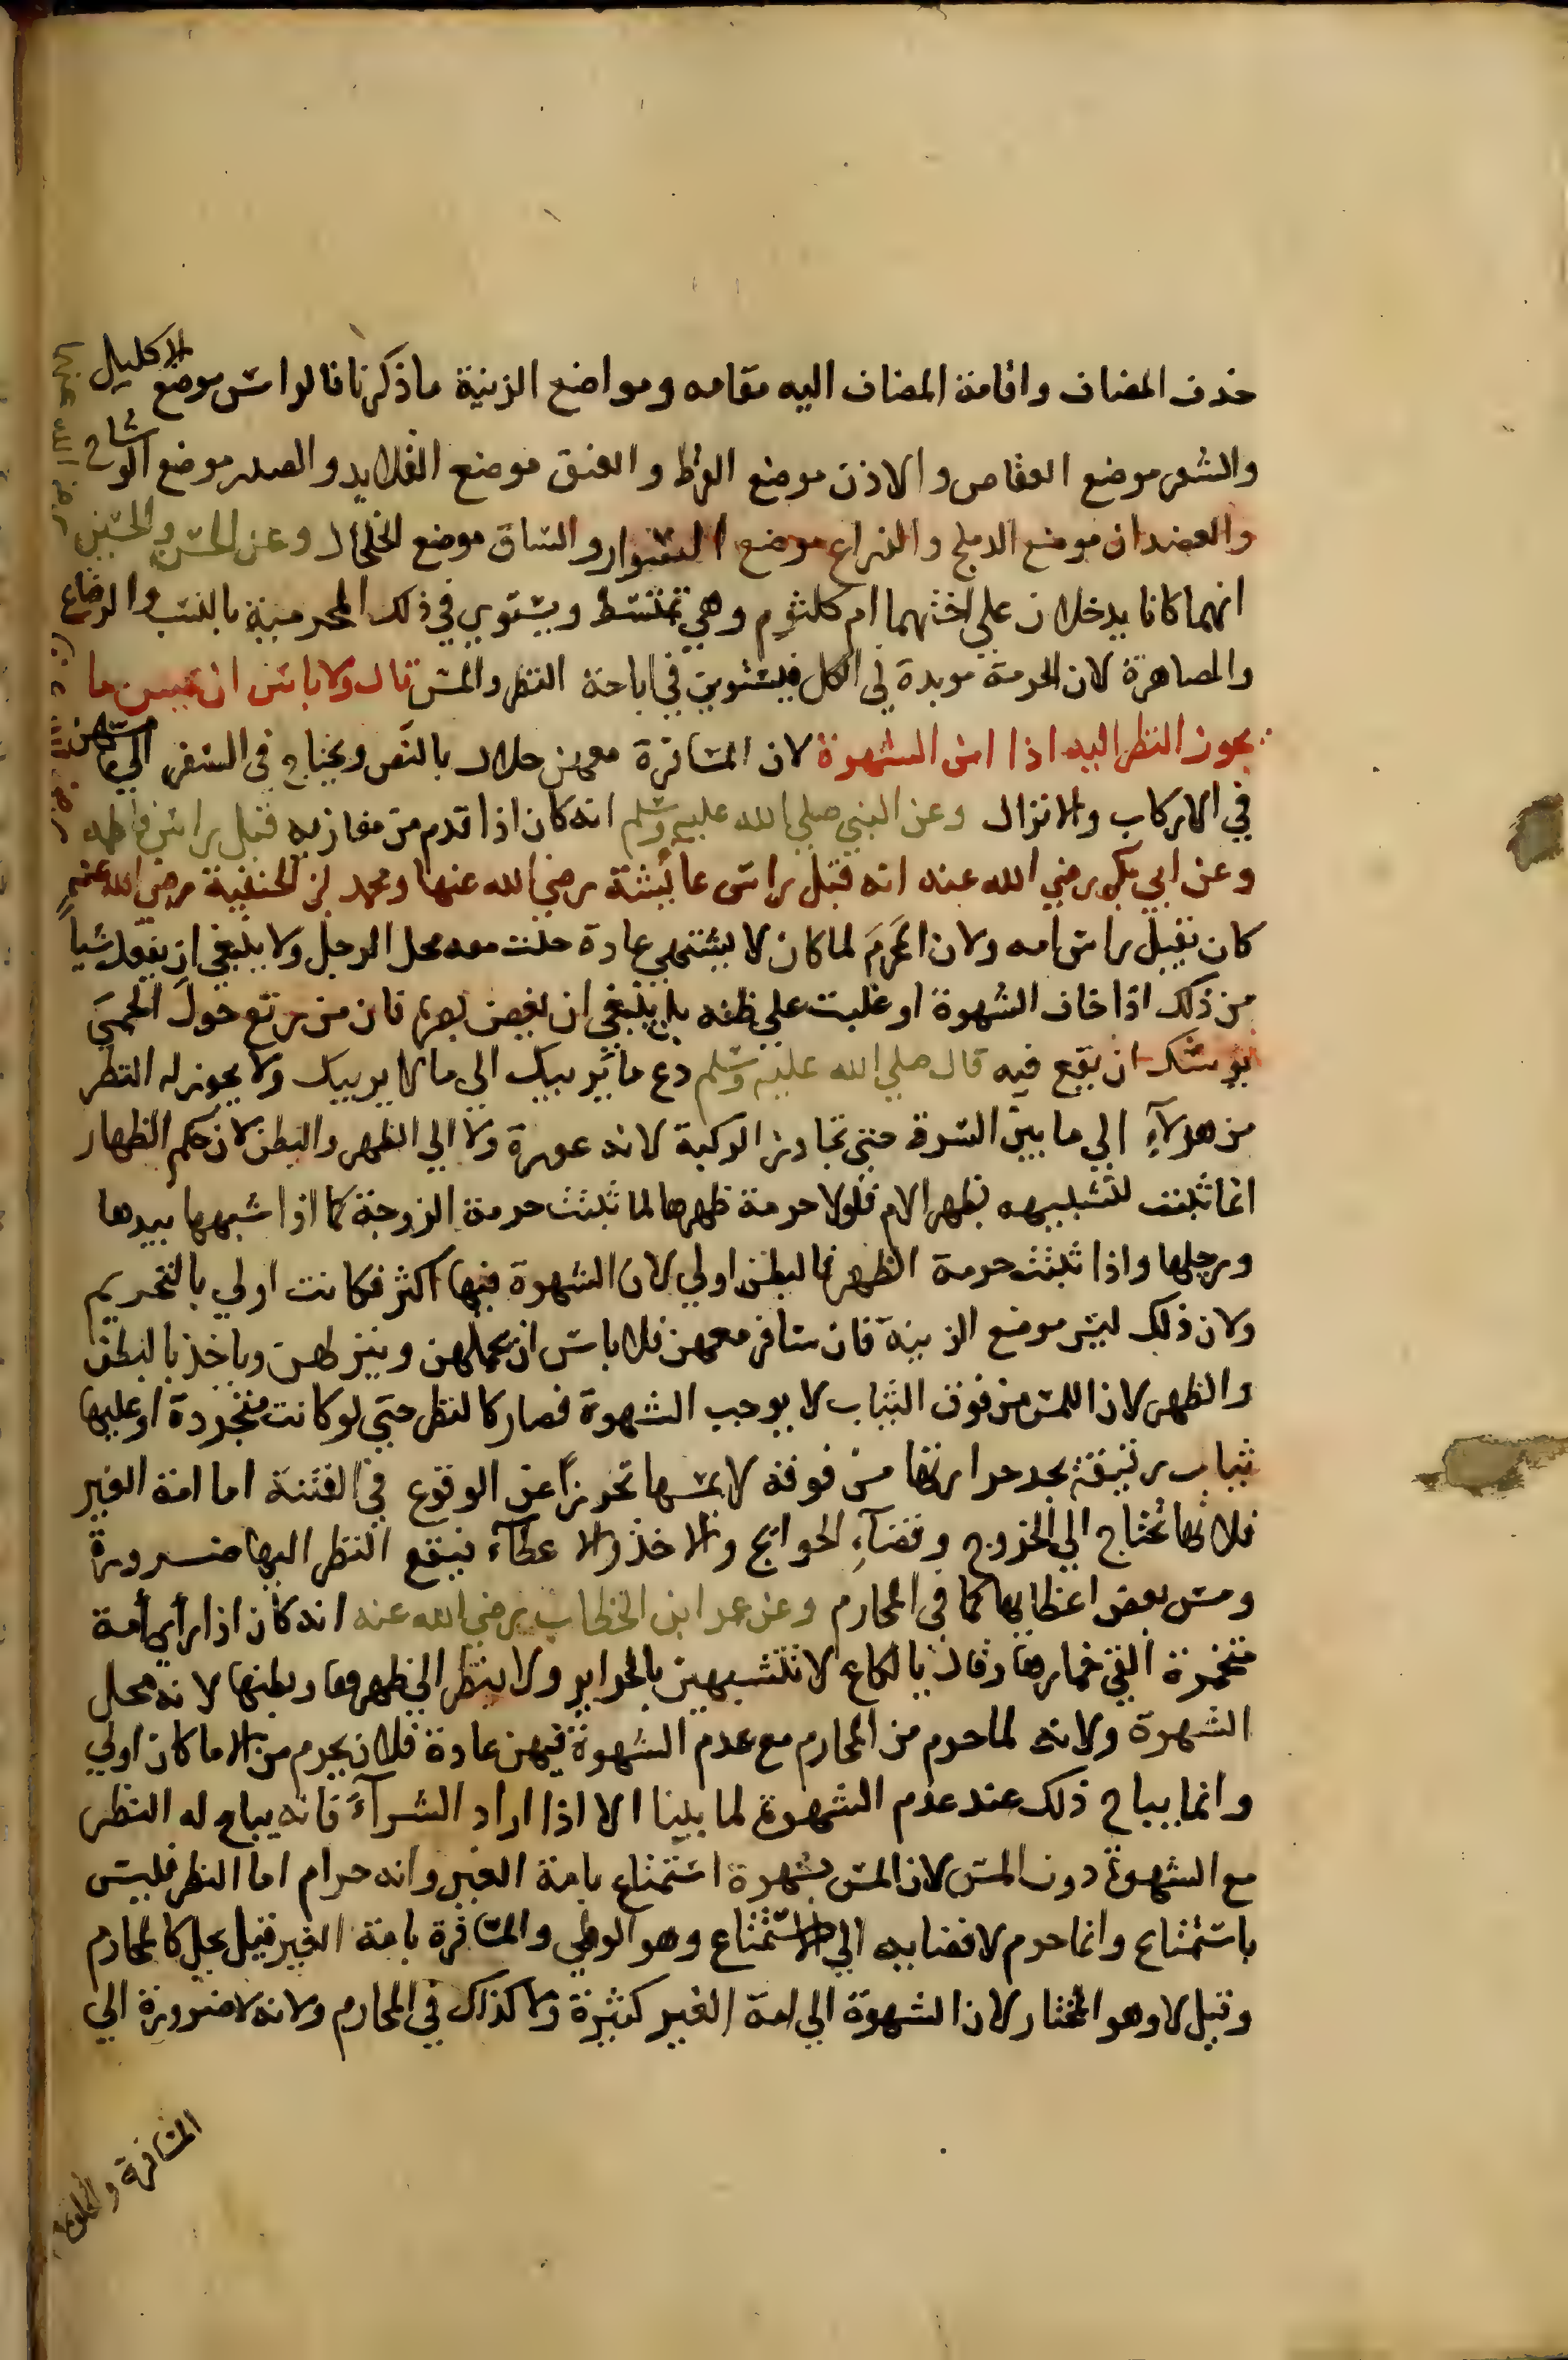 حذف المضاف واقامة المضاف اليه مقامه ومواضع الزينة ما ذكرنا فالراس موضع الاكليل
والشعر موضع العقاص والاذن موضع القرط والعنق موضع القلايد والصدر موضع الوشاح
والعضدان موضع الدملج والذراع موضع السوار والساق موضع الخلخال وعن الحسن والحسين
رضي الله عنهما
انهما كانا يدخلان علي اختهما ام كلثوم وهي تمتشط ويستوي في ذلك المحرمية بالنسب والرضاع
والمصاهرة لان الحرمة موبدة في الكل فيستوين في اباحة النظر والمس قال ولا باس ان يمس ما
يجوز النظر اليه اذا امن الشهوة لان المسافرة معهن حلال بالنص ويحتاج في السفر الي مسهن
في الاركاب والانزال وعن النبي صلي الله عليه وسلم انه كان اذا قدم من مغازيه قبل راس فاطمه
وعن ابي بكر رضي الله عنه انه قبل راس عائيشة رضي الله عنها ومحمد بن الحنفية رضي الله عنهم
كان يقبل راس امه ولان المحرم لما كان لا يشتهي عادة حلت معه محل الرجل ولا ينبغي ان يفعل شياً
من ذلك اذا خاف الشهوة او غلبت علي ظنه بل ينبغي ان يغض بصره فان من رتع حول الحمي
يوشك ان يقع فيه قال صلي الله عليه وسلم دع ما يريبك الي ما لا يريبك ولا يجوز له النظر
من هولآءِ الي ما بين السرة حتي تجاوز الركبة لانه عورة ولا الي الظهر والبطن لان حكم الظهار
انما ثبتت للتشبيهه بظهر الام فلولا حرمة ظهرها لما ثبتت حرمة الزوجة كما اذا شبهها بيدها
ورجلها واذا ثبتت حرمة الظهر فالبطن اولي لان الشهوة فيها اكثر فكانت اولي بالتحريم
ولان ذلك ليس موضع الزينة فان سافر معهن فلا باس ان يحملهن وينزلهن وياخذ بالبطن
والظهر لان اللمس من فوق الثياب لا يوجب الشهوة فصار كالنظر حتي لو كانت متجردة او عليها
ثياب رقيقة يجد حرارتها من فوقه لا يمسها تحرزاً عن الوقوع في الفتنة اما امة الغير
فلانها تحتاج الي الخروج وقضآءِ الحوايج والاخذ والا عطآء فيقع النظر اليها ضرورة
ومس بعض اعظايها كما في المحارم وعن عمر ابن الخطاب رضي الله عنه انه كان اذا رأى أمة
متخمرة القي خمارها وقال يا لكاع لا تتشبهين بالحراير ولا ينظر الي ظهرها وبطنها لانه محل
الشهوة ولانه لما حرم من المحارم مع عدم الشهوة فيهن عادة فلان يحرم من الاما كان اولي
وانما يباح ذلك عند عدم الشهوة لما بينا الا اذا اراد الشرآءَ فانه يباح له النظر
مع الشهوة دون المس لان المس بشهوة استمتاع بامة الغير وانه حرام اما النظر فليس
باستمتاع وانما حرم لافضايه الي الاستمتاع وهو الوطي والمسافرة بامة الغير قيل يحل كالمحارم
وقيل لا وهو المختار لان الشهوة الي امة الغير كثيرة ولا كذلك في المحارم ولانه لا ضرورة الي
المسافرة والخلوة